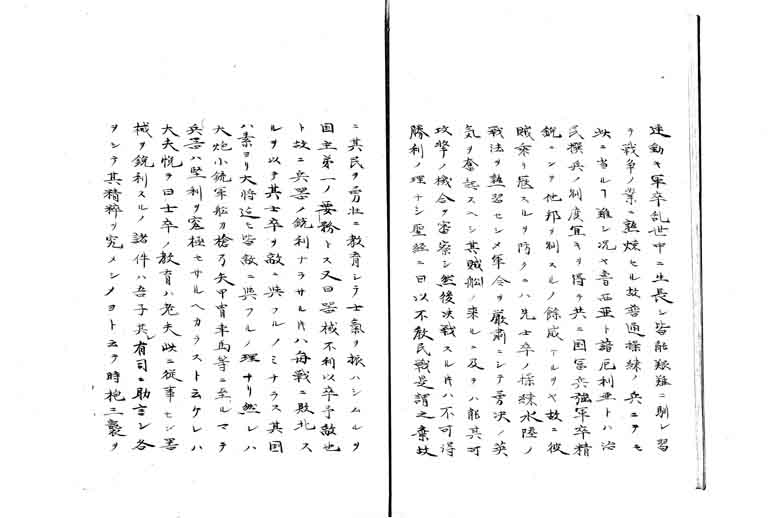 連動キ軍卒乱世中ニ生長シ皆能艱難ニ馴レ習
テ戦争ノ業ニ熟煉セル故普通操練ノ兵ニテモ
此ニ当ルヿ難シ况ヤ魯西亜ト諳厄利亜トハ治
民撰兵ノ制度宜キヲ得テ共ニ国冨兵強軍卒精
鋭ニシテ他邦ヲ制スルノ餘威アルヲヤ故ニ彼
賊乗リ屡スルヲ防クニハ先士卒ノ操練水陸ノ
戦法ヲ熟習セシメ軍令ヲ厳肅ニシテ勇决ノ英
気ヲ奮起スヘシ其賊舩ノ来ルニ及テハ能其可
攻撃ノ機会ヲ審察シ然後决戦スル片ハ不可得
勝利ノ理ナシ聖経ニ曰以不教民戦是謂之棄故
ニ其民ヲ勇壮ニ教育シテ士氣ヲ振ハシムルヲ
国主第一ノ要務トス又曰器械不利以卒予敵也
ト故ニ兵器ノ銃利ナラサル片ハ毎戦ニ敗北ス
ルヲ以テ其士卒ヲ敵ニ與フルノミナラス其国
ハ素ヨリ大将迠モ皆敵ニ與フルノ理ナリ然レハ
大炮小銃軍舩刀槍弓矢甲冑車馬等ニ至ルマテ
兵器ハ堅利ヲ窮極セサルヘカラスト云ケレハ
大夫悦テ曰士卒ノ教育ハ老夫此ニ従事セン器
械ヲ鋭利スルノ諸件ハ吾子共有司ニ助言シ各
ヲシテ其精粹ヲ究メシメヨト云テ時枹三襲ヲ